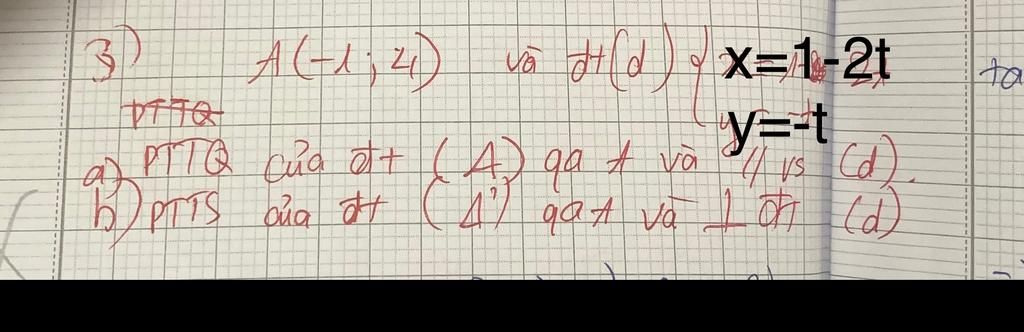 3) A(-1; 4) và đt(d) { x=1-2t
y=-t
PTTQ
a) PTTQ của đt (Δ) qa A và // vs (d).
b) PTTS của đt (Δ') qa A và ⊥ đt (d)
ta